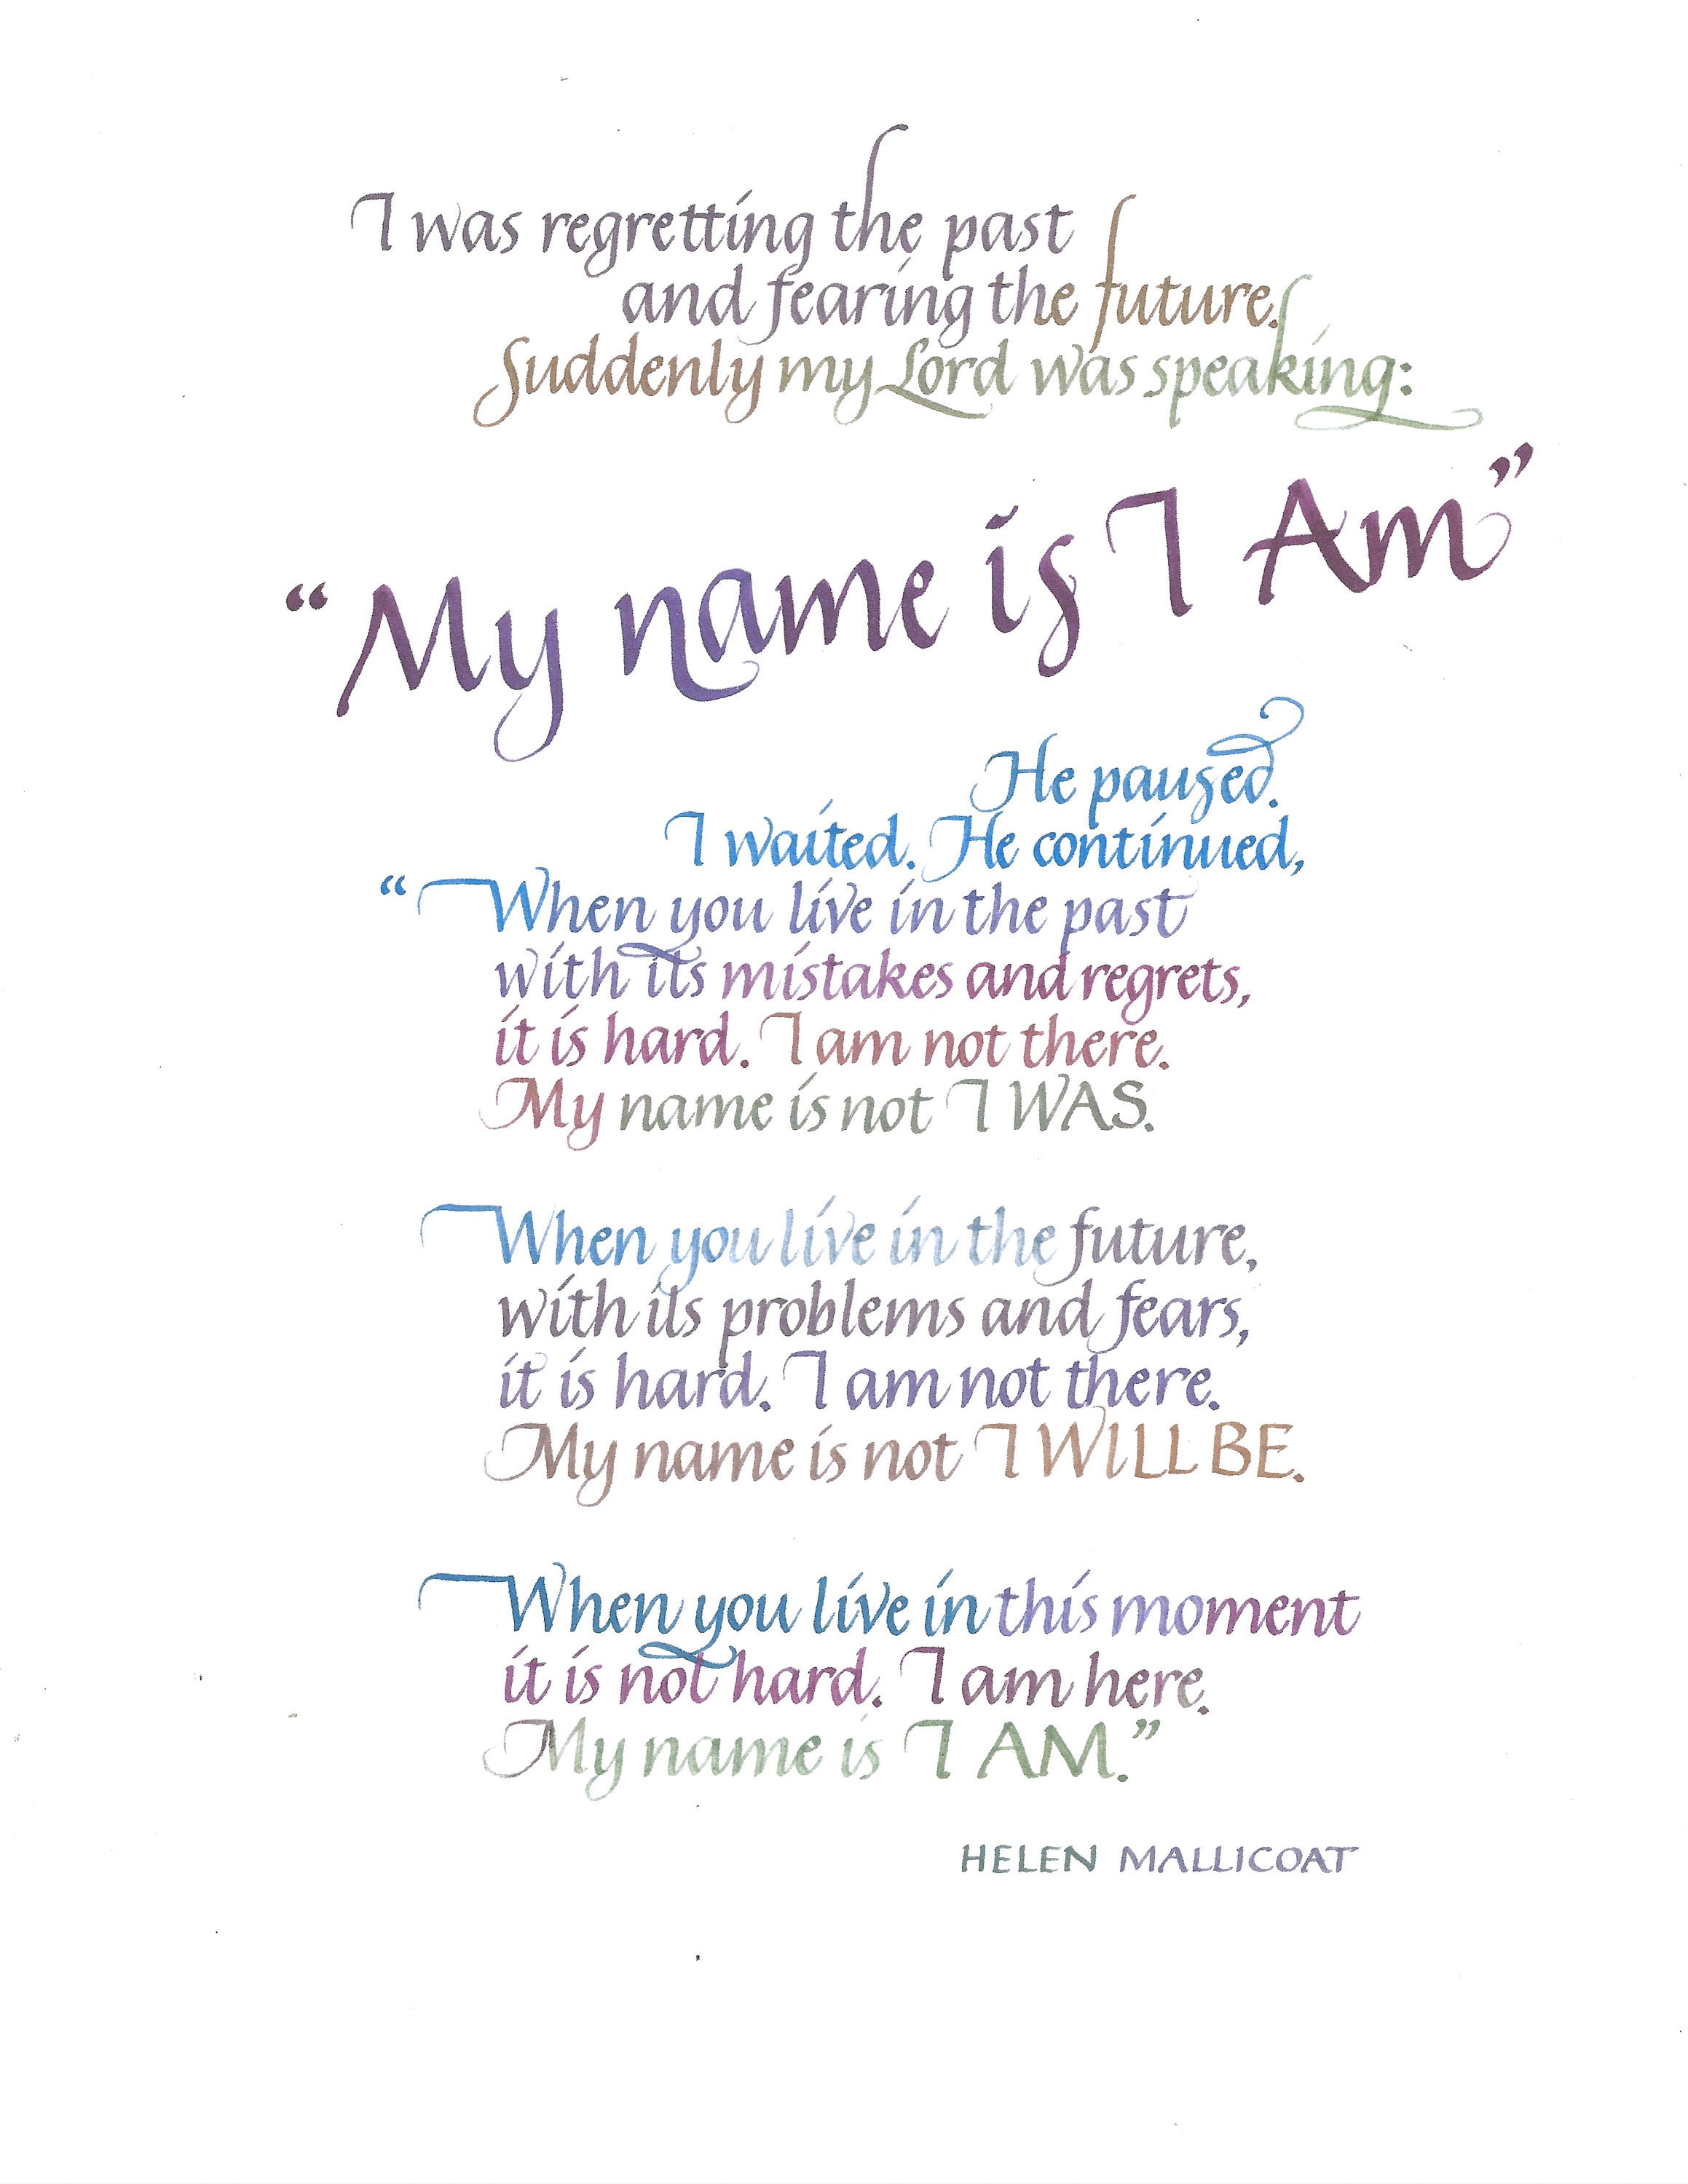 I was regretting the past
and fearing the future.
Suddenly my Lord was speaking:
“My name is I Am”
He paused.
I waited. He continued,
“When you live in the past
with its mistakes and regrets,
it is hard. I am not there.
My name is not I WAS.
When you live in the future,
with its problems and fears,
it is hard. I am not there.
My name is not I WILL BE.
When you live in this moment
it is not hard. I am here.
My name is I AM.”
HELEN MALLICOAT